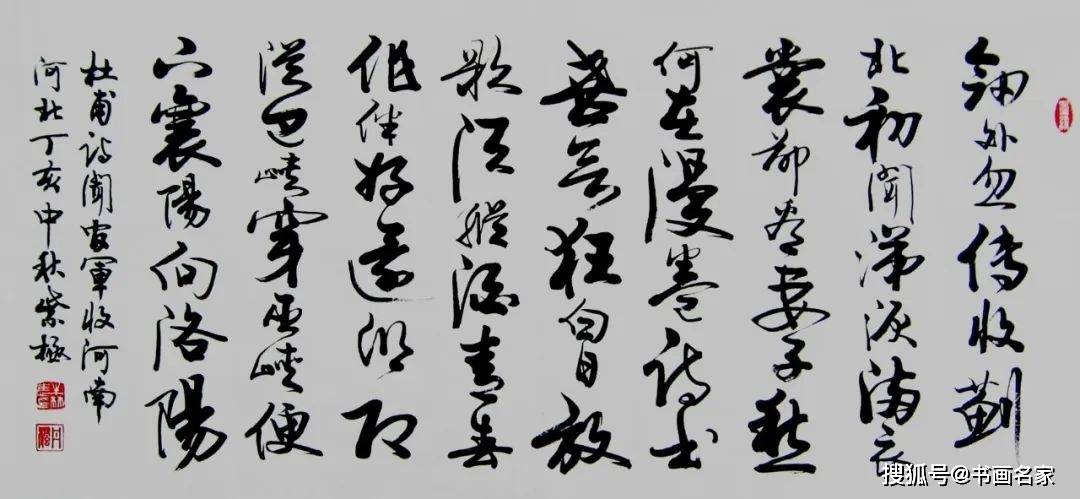 劍外忽傳收薊
北初聞涕淚滿衣
裳却看妻子愁
何在漫卷詩書
喜欲狂白日放
歌須縱酒青春
作伴好還鄉即
從巴峽穿巫峽便
下襄陽向洛陽
杜甫詩聞官軍收河南
河北丁亥中秋紫極
搜狐号@书画名家